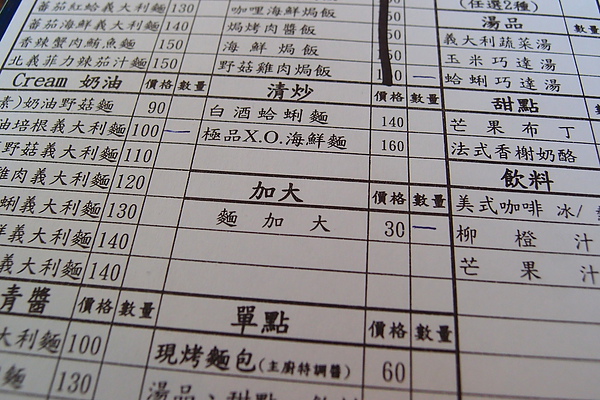 蕃茄紅蛤義大利麵 130
蕃茄海鮮義大利麵 150
香辣蟹肉鮪魚麵 150
北義菲力辣茄汁麵 150
Cream 奶油 價格 數量
素)奶油野菇麵 90
油培根義大利麵 100 一
野菇義大利麵 110
雞肉義大利麵 120
蜊義大利麵 130
義大利麵 140
義大利麵 140
青醬 價格 數量
大利麵 100
麵 130
咖哩海鮮焗飯
焗烤肉醬飯
海鮮焗飯
野菇雞肉焗飯 一
清炒 價格 數量
白酒蛤蜊麵 140
極品X.O.海鮮麵 160
加大 價格 數量
麵加大 30 一
單點 價格 數量
現烤麵包(主廚特調醬) 60
湯品、甜點
(任選2種)
湯品
義大利蔬菜湯
玉米巧達湯
蛤蜊巧達湯
甜點
芒果布丁
法式香榭奶酪
飲料
美式咖啡 冰/
柳橙汁
芒果汁